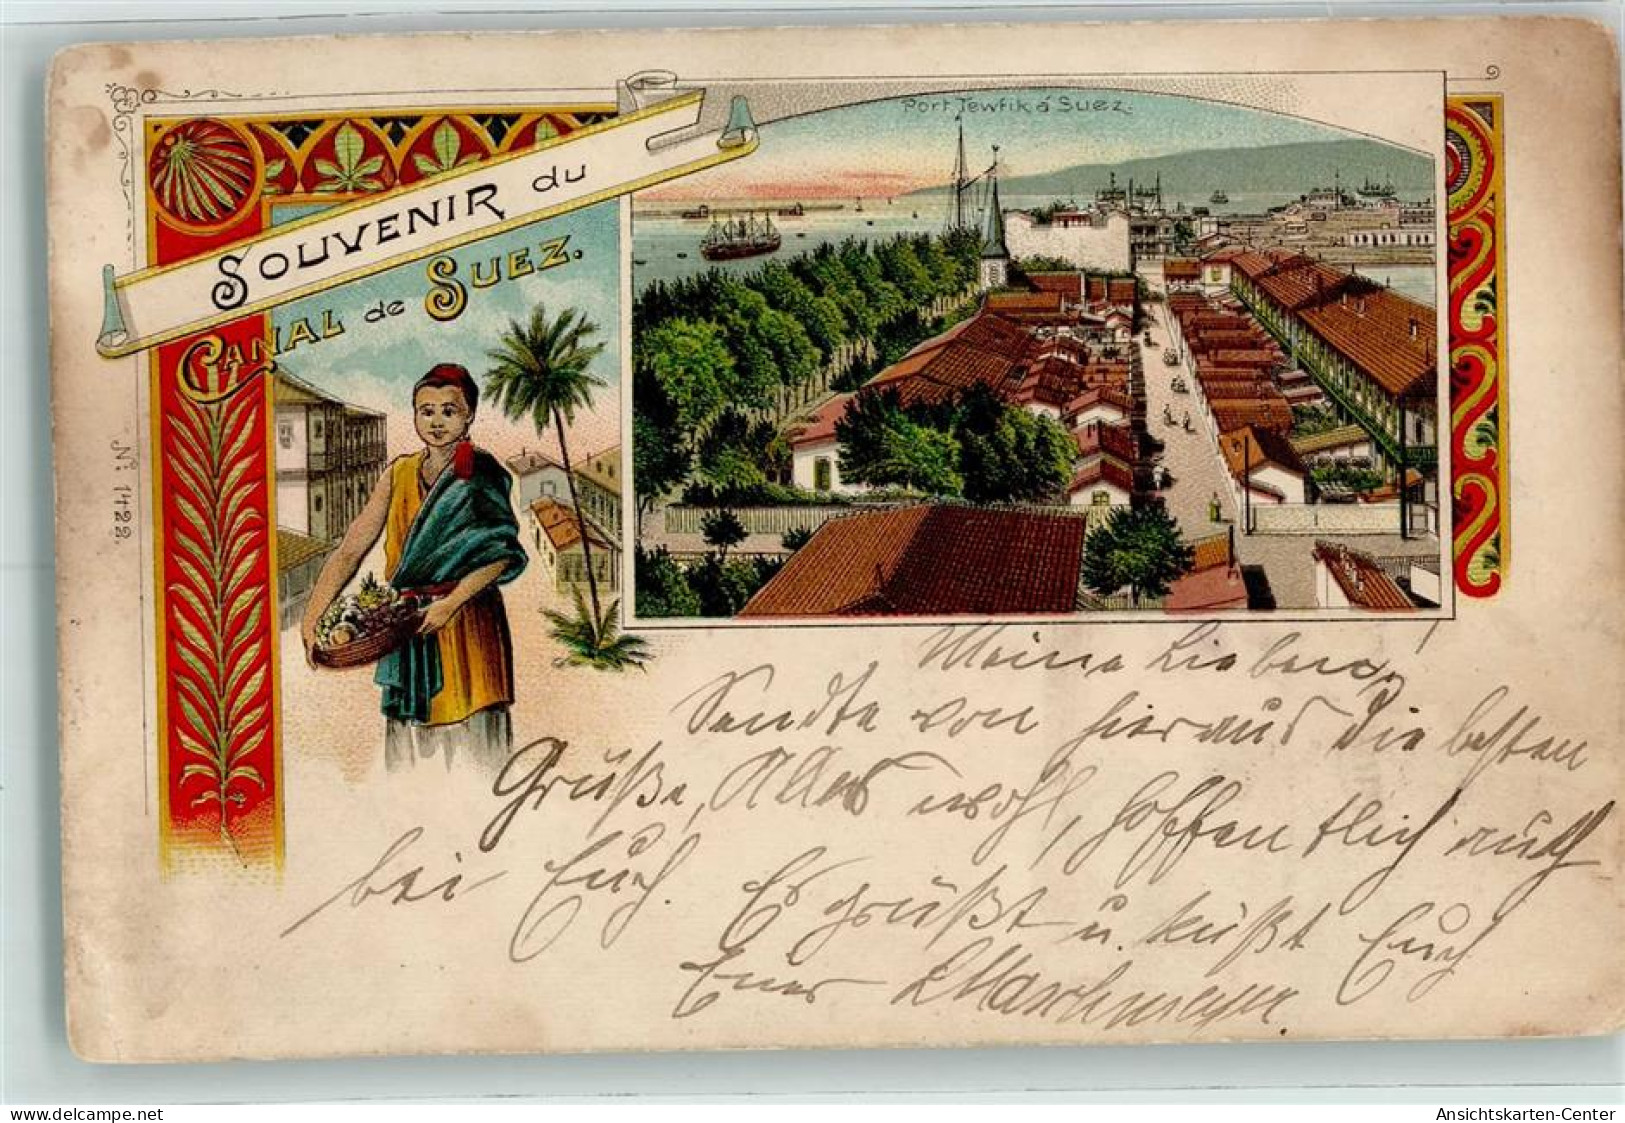 SOUVENIR du
CANAL de SUEZ.
Port Tewfik á Suez.
No 1422.
Meine Lieben!
Sendte von hieraus die besten
Grüße, Alles wohl, hoffentlich auch
bei Euch. Es grüßt u. küßt Euch
Euer
akpool.de
Ansichtskarten-Center